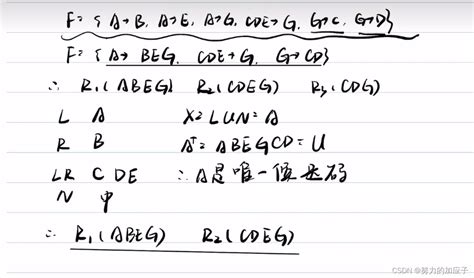 F={A→B, A→E, A→G, CDE→G, G→C, G→D}
F={A→BEG, CDE→G, G→CD}
∴ R₁(ABEG) R₂(CDEG) R₃(CDG)
L A X=LUN=A
R B A⁺=ABEGCD=U
LR C DE ∴A是唯一候选码
N φ
∴ R₁(ABEG) R₂(CDEG)
CSDN @努力的加应子